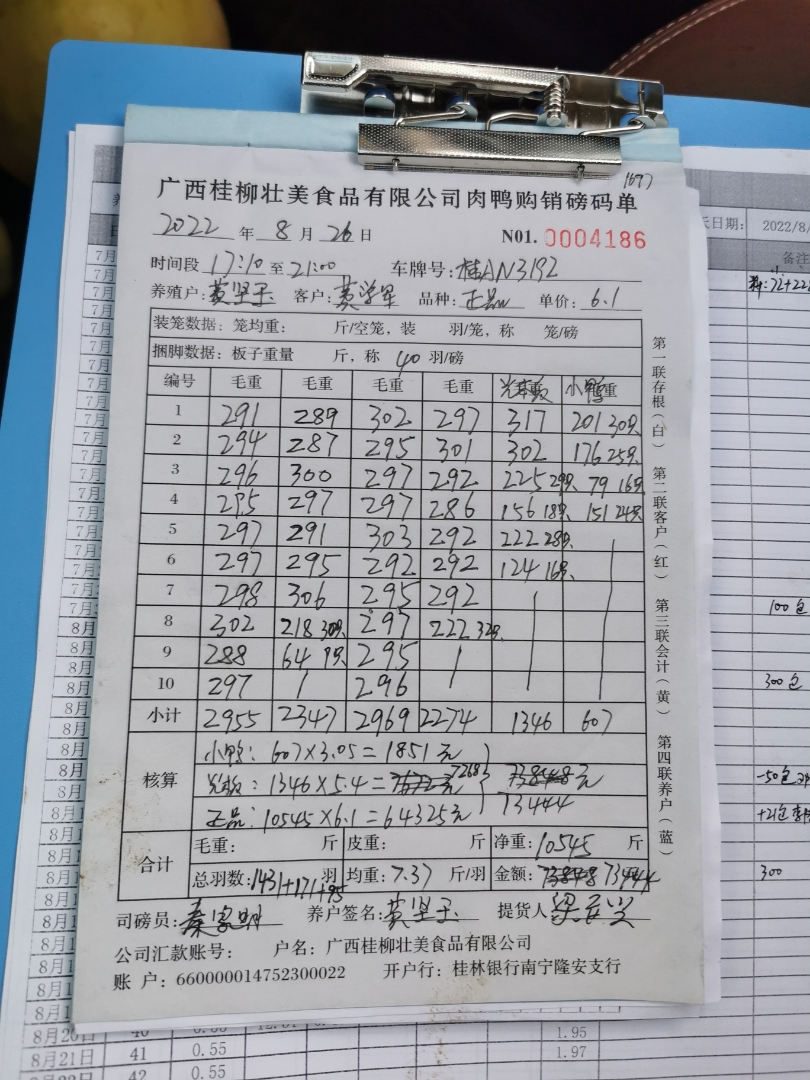 1697
广西桂柳壮美食品有限公司肉鸭购销磅码单
2022 年 8 月 26 日 N01. 0004186
时间段 17:10 至 21:00 车牌号: 桂AN3192
养殖户: 黄坚玉 客户: 黄学军 品种: 正品 单价: 6.1
装笼数据: 笼均重: 斤/空笼, 装 羽/笼, 称 笼/磅
捆脚数据: 板子重量 斤, 称 40 羽/磅
编号 毛重 毛重 毛重 毛重 光板 毛重 小鸭 重
1 291 289 302 297 317 201 30只
2 294 287 295 301 302 176 25只
3 296 300 297 292 225 29只 79 16只
4 295 297 297 286 156 18只 151 24只
5 297 291 303 292 222 28只
6 297 295 292 292 124 16只
7 298 306 295 292
8 302 218 30只 297 222 32只
9 288 64 9只 295 /
10 297 / 296
小计 2955 2347 2969 2274 1346 607
核算
小鸭: 607×3.05=1851元
光板: 1346×5.4= 7268 元
正品: 10545×6.1=64325元 73444
合计
毛重: 斤 皮重: 斤 净重: 10545 斤
总羽数: 1431+171+95 羽 均重: 7.37 斤/羽 金额: 73444
司磅员: 秦家明 养户签名: 黄坚玉 提货人
公司汇款账号: 户名: 广西桂柳壮美食品有限公司
账 户: 660000014752300022 开户行: 桂林银行南宁隆安支行
第一联存根(白) 第二联客户(红) 第三联会计(黄) 第四联养户(蓝)
日期: 2022/8/
备注
100包
300包
-50包
+21包
300
7月
8月
8月20日 40 0.55 1.95
8月21日 41 0.55 1.97
42 0.55